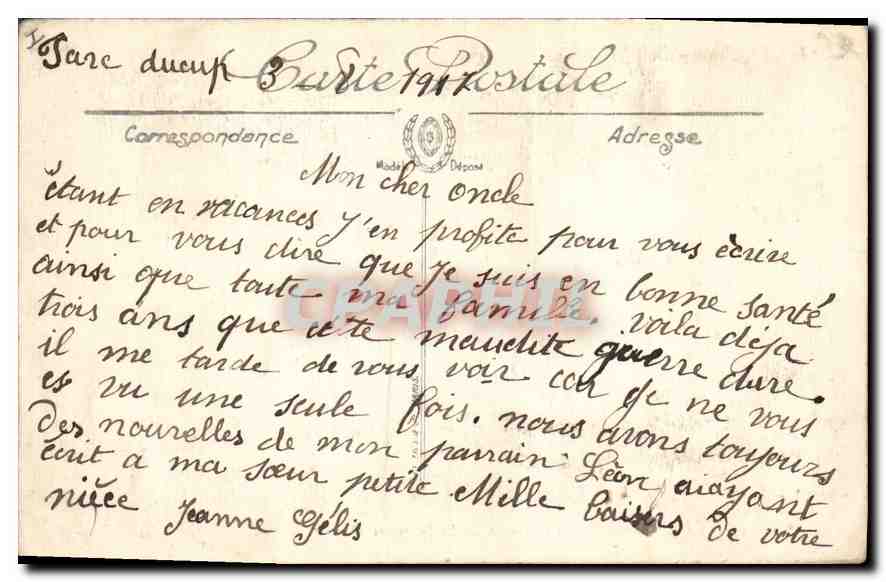 Carte Postale
3 - 1 1917
Correspondance
Adresse
Modèle Déposé
Mon cher oncle
étant en vacances j'en profite pour vous écrire
et pour vous dire que je suis en bonne santé
ainsi que toute ma famille. voila déja
trois ans que cette maudite guerre dure.
il me tarde de vous voir car je ne vous
es vu une seule fois. nous avons toujours
des nouvelles de mon parrain Léon aiayant
écrit a ma sœur petite Mille baisers de votre
nièce Jeanne Gélis
CPAPHIL